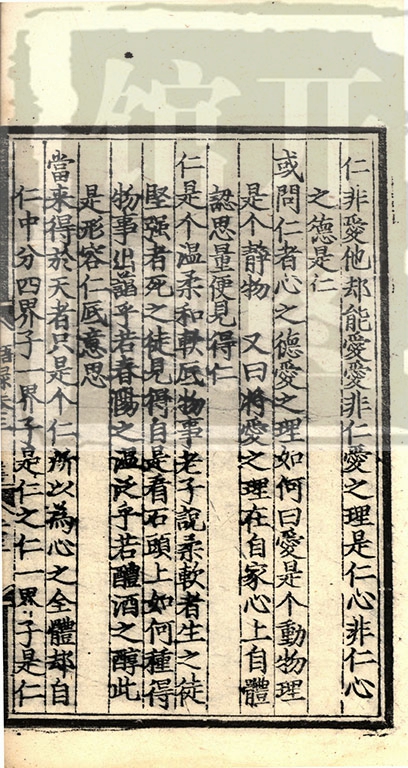 仁非愛他却能愛愛非仁愛之理是仁心非仁心
之德是仁
或問仁者心之德愛之理如何曰愛是个動物理
是个静物　又曰將愛之理在自家心上自體
認思量便見得仁
仁是个温柔和軟底物事老子説柔軟者生之徒
堅强者死之徒見得自是看石頭上如何種得
物事出藹乎若春陽之温泛乎若醴酒之醇此
是形容仁底意思
當來得於天者只是个仁所以為心之全體却自
仁中分四界子一界子是仁之仁一界子是仁